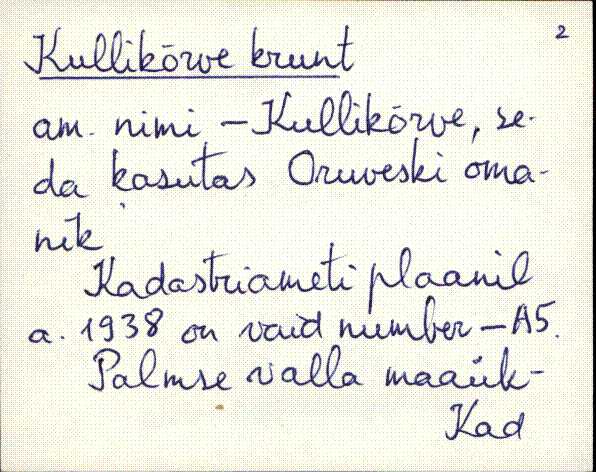 2
Kullikõrve krunt
am. nimi – Kullikõrve, se-
da kasutas Oruveski oma-
nik
Kadastriameti plaanil
a. 1938 on vaid number – A5.
Palmse valla maaük-
Kad